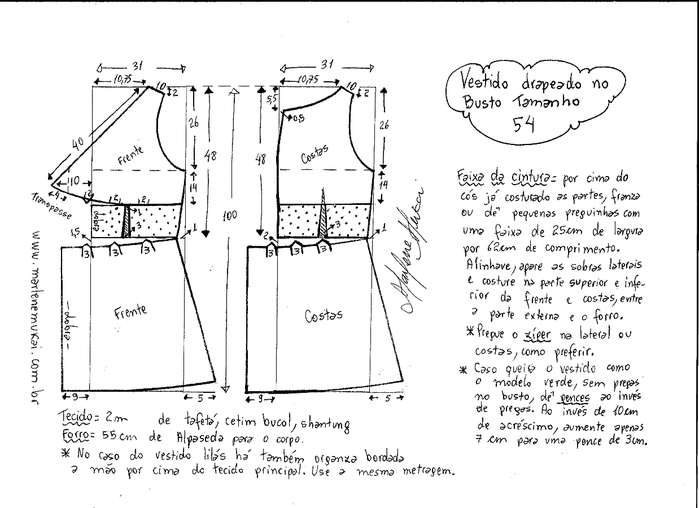 Vestido drapeado no
Busto Tamanho
54
31
10,75
10
2
40
26
48
Frente
10
4
Transpasse
14
2
2
3
1,5
1
3
3
3
Frente
dobra
9
5
100
31
10,75
10
2
5,5
0,8
26
48
Costas
14
3
2
1
3
3
3
Costas
9
5
www.marlenemukai.com.br
Marlene Mukai
Faixa da cintura= por cima do
cós já costurado as partes, franza
ou dê pequenas preguinhas com
uma faixa de 25cm de largura
por 62cm de comprimento.
Alinhave, apare as sobras laterais
e costure na parte superior e infe-
rior da frente e costas, entre
a parte externa e o forro.
* Pregue o zíper na lateral ou
costas, como preferir.
* Caso queira o vestido como
o modelo verde, sem pregas
no busto, dê pences ao invés
de pregas. Ao invés de 10cm
de acréscimo, aumente apenas
7 cm para uma pence de 3cm.
Tecido= 2m de tafetá, cetim bucol, shantung
Forro= 55cm de Alpaseda para o corpo.
* No caso do vestido lilás há também organza bordada
a mão por cima do tecido principal. Use a mesma metragem.